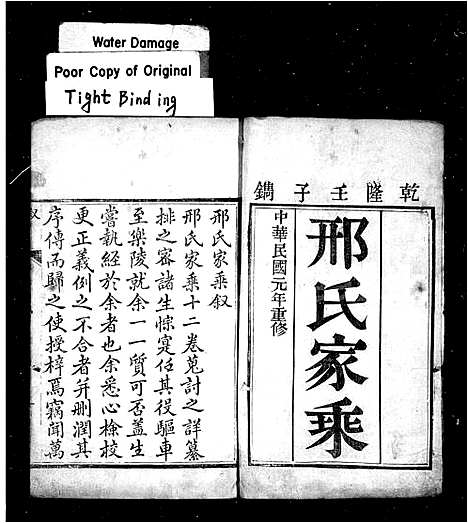 Water Damage
Poor Copy of Original
Tight Binding
乾隆壬子鐫
邢氏家乘
中華民國元年重修
邢氏家乘叙
邢氏家乘十二卷蒐討之詳纂
排之審諸生悰寔伍其役驅車
至樂陵就余一一質可否蓋生
嘗執經於余者也余悉心檢校
更正義例之不合者并刪潤其
序傳而歸之使授梓焉竊聞萬